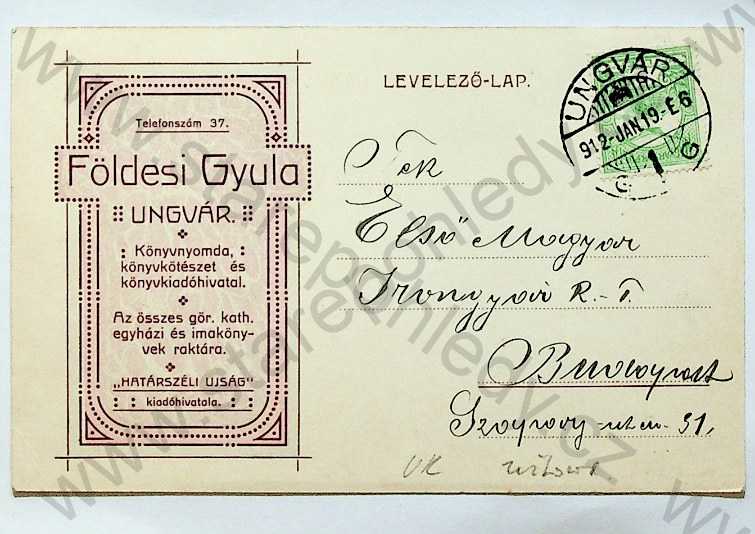 LEVELEZŐ-LAP.
UNGVÁR
912-JAN.19.-E6
G 1 G
Telefonszám 37.
Földesi Gyula
UNGVÁR.
Könyvnyomda,
könyvkötészet és
könyvkiadóhivatal.
Az összes gör. kath.
egyházi és imaköny-
vek raktára.
„HATÁRSZÉLI UJSÁG"
kiadóhivatala.
Tek
Első Magyar
Irongyár R.-T.
Budapest
31.
www.starepohledy.cz